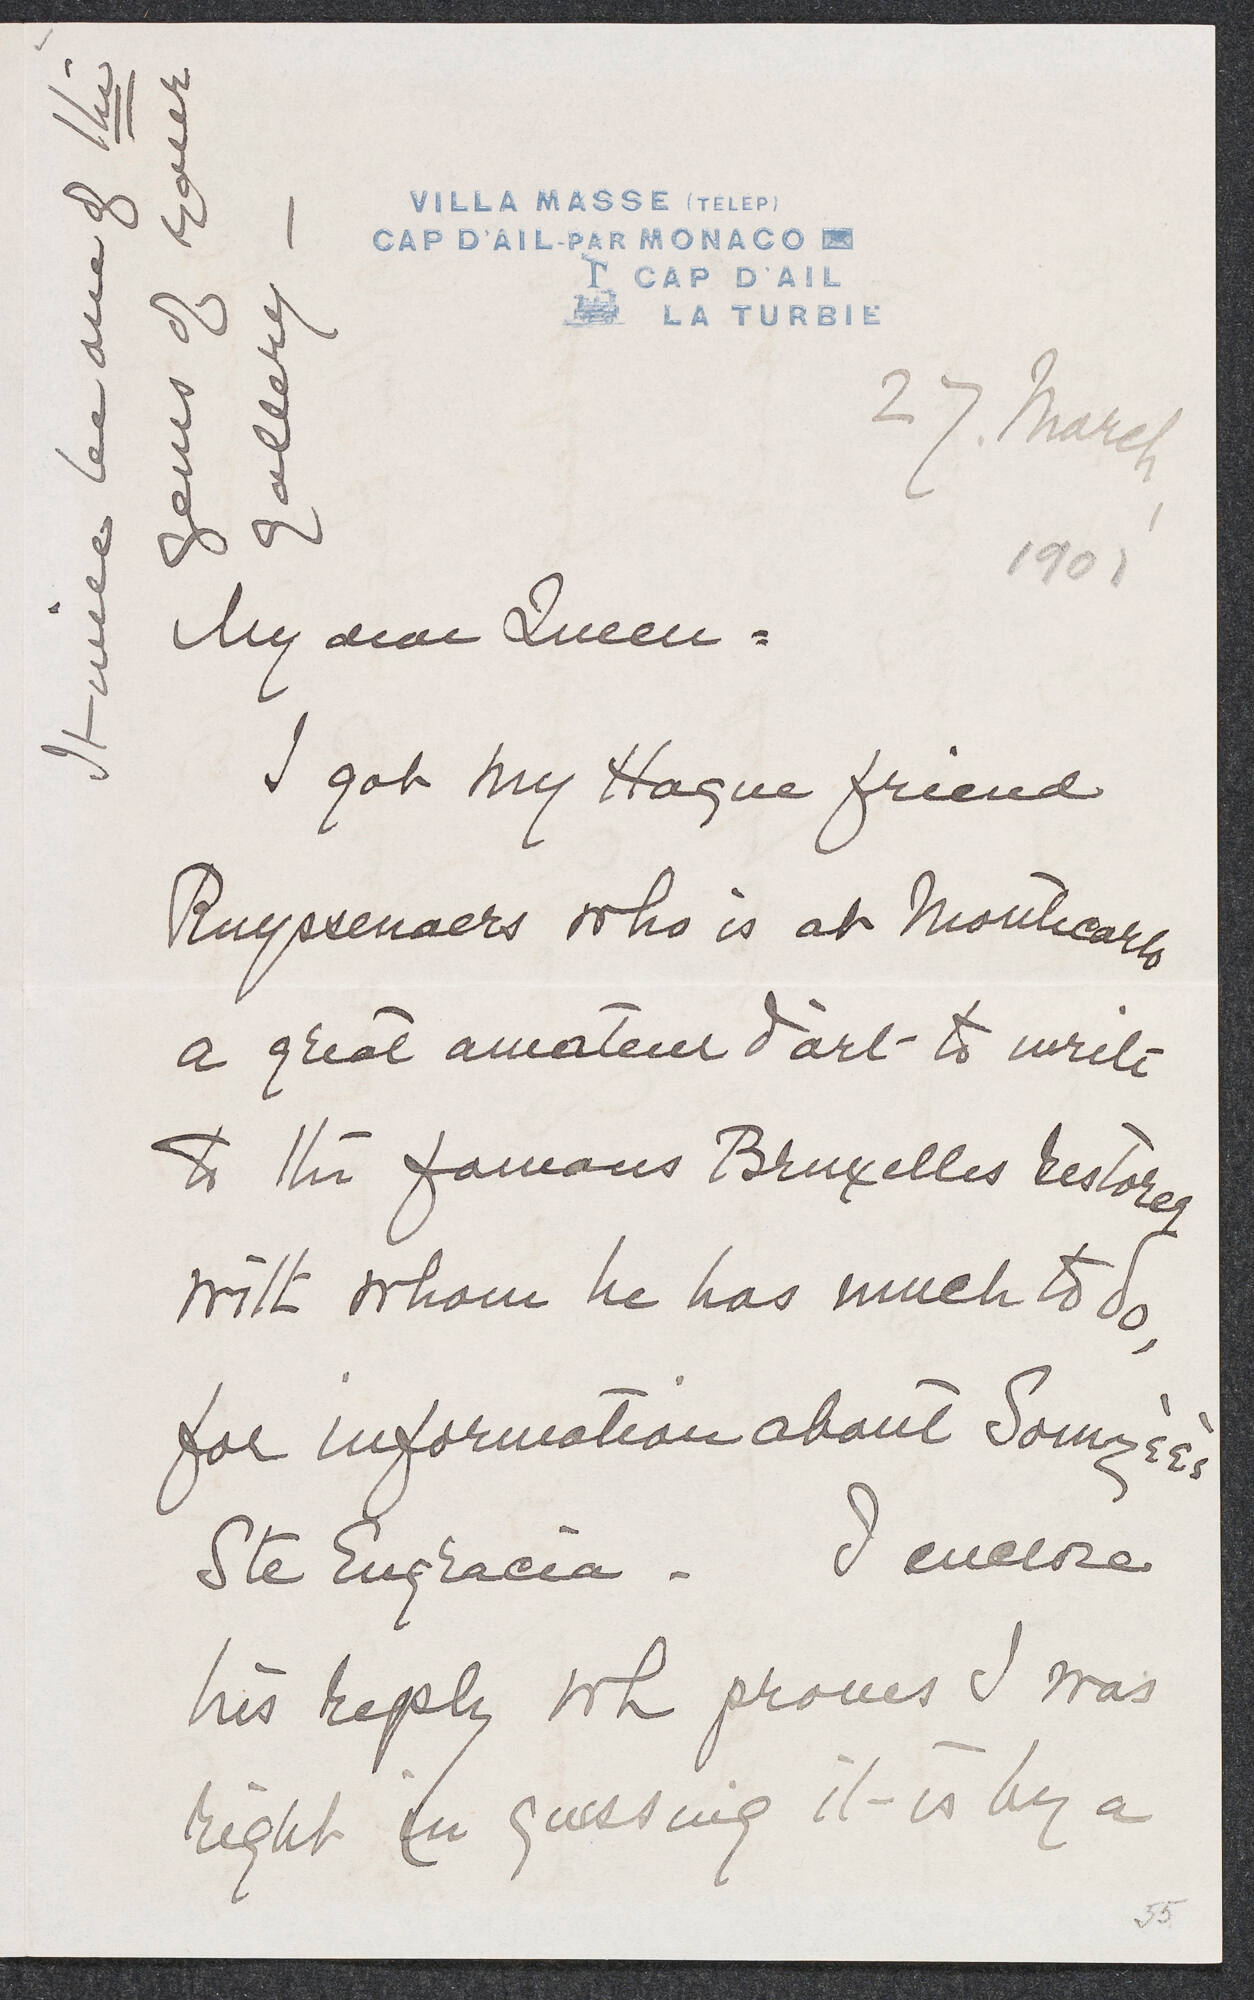 It will be one of the
gems of your
gallery —
VILLA MASSE (TELEP)
CAP D'AIL-PAR MONACO
CAP D'AIL
LA TURBIE
27. March,
1901
My dear Queen =
I got my Hague friend
Ruyssenaers who is at Montecarlo
a great amateur d'art - to write
to the famous Bruxelles restorer
with whom he has much to do,
for information about Somzèè's
Ste Engracia - I enclose
his reply wh proves I was
right in guessing it is by a
55